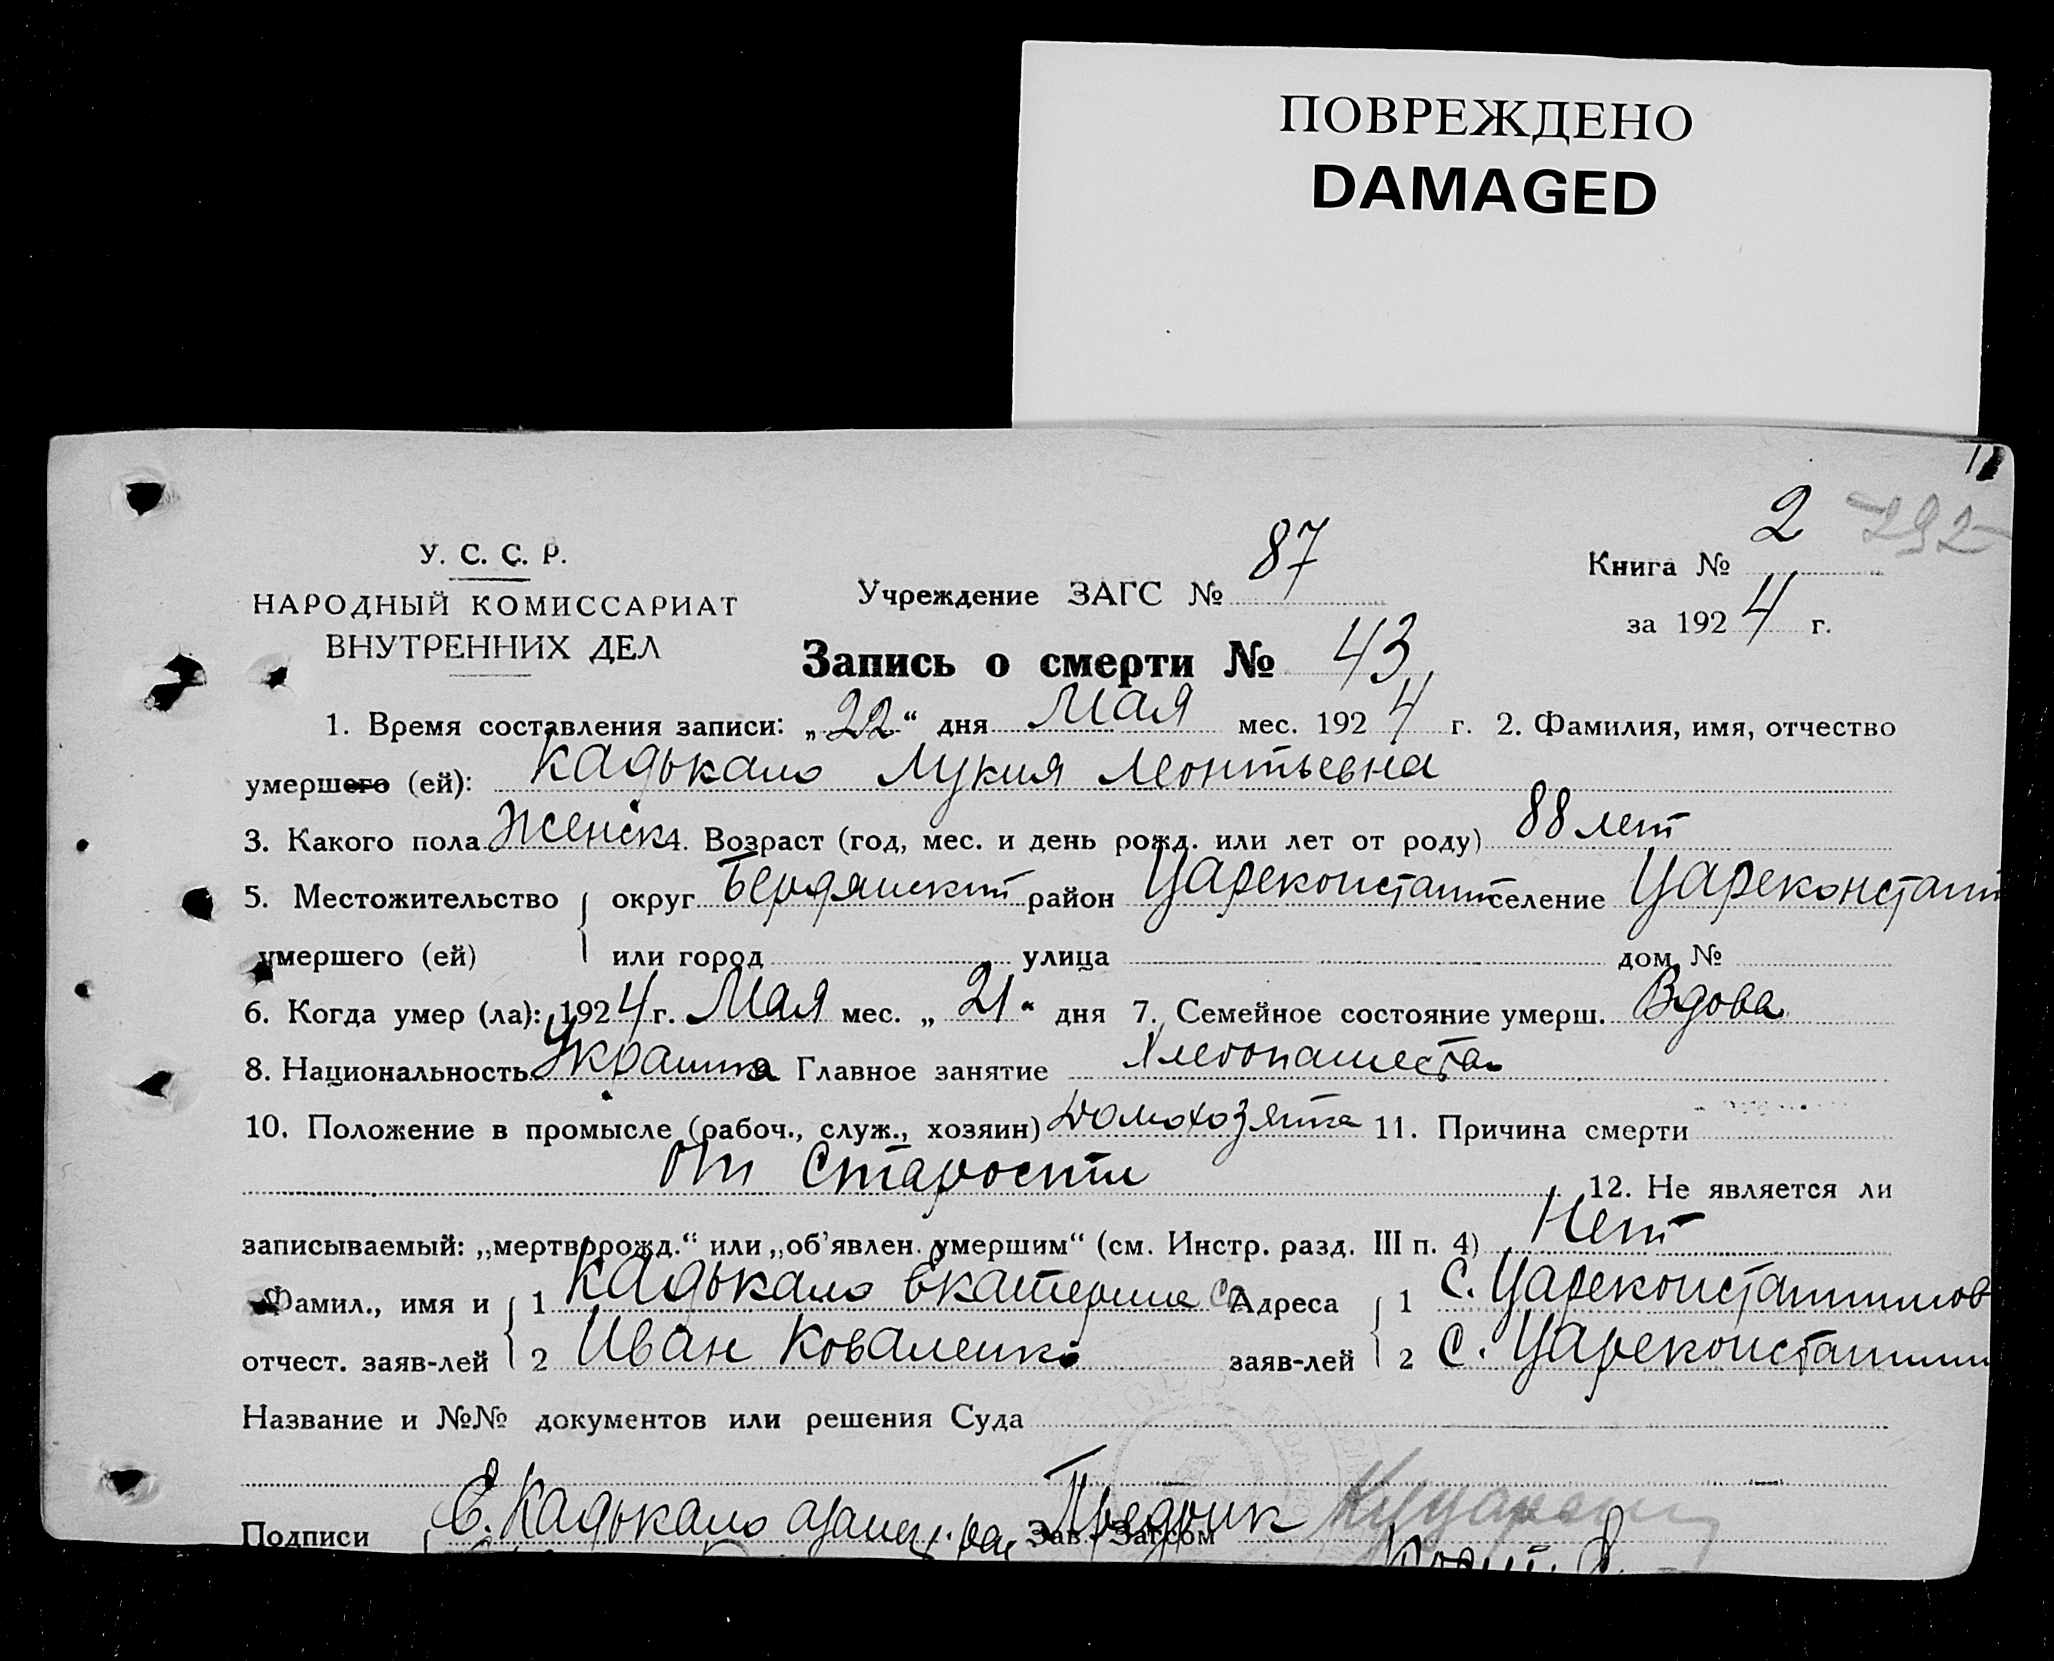 ПОВРЕЖДЕНО
DAMAGED
2 292
У. С. С. Р.
НАРОДНЫЙ КОМИССАРИАТ
ВНУТРЕННИХ ДЕЛ
Учреждение ЗАГС № 87
Книга №
за 1924 г.
Запись о смерти № 43
1. Время составления записи: „22“ дня Мая мес. 1924 г. 2. Фамилия, имя, отчество
умершего (ей): Кадькало Лукия Леонтьевна
3. Какого пола Женск 4. Возраст (год, мес. и день рожд. или лет от роду) 88 лет
5. Местожительство округ Бердянский район Цареконстант селение Цареконстант
умершего (ей) или город улица дом №
6. Когда умер (ла): 1924 г. Мая мес. „21“ дня 7. Семейное состояние умерш. Вдова
8. Национальность Украинка Главное занятие Хлебопашество
10. Положение в промысле (рабоч., служ., хозяин) Домохозяйка 11. Причина смерти
От Старости 12. Не является ли
записываемый: „мертворожд.“ или „об’явлен. умершим“ (см. Инстр. разд. III п. 4) Нет
Фамил., имя и 1 Кадькало Екатерина Адреса 1 С. Цареконстантинов
отчест. заяв-лей 2 Иван Коваленко заяв-лей 2 С. Цареконстантин
Название и №№ документов или решения Суда
Подписи Е. Кадькало Зав. Загсом